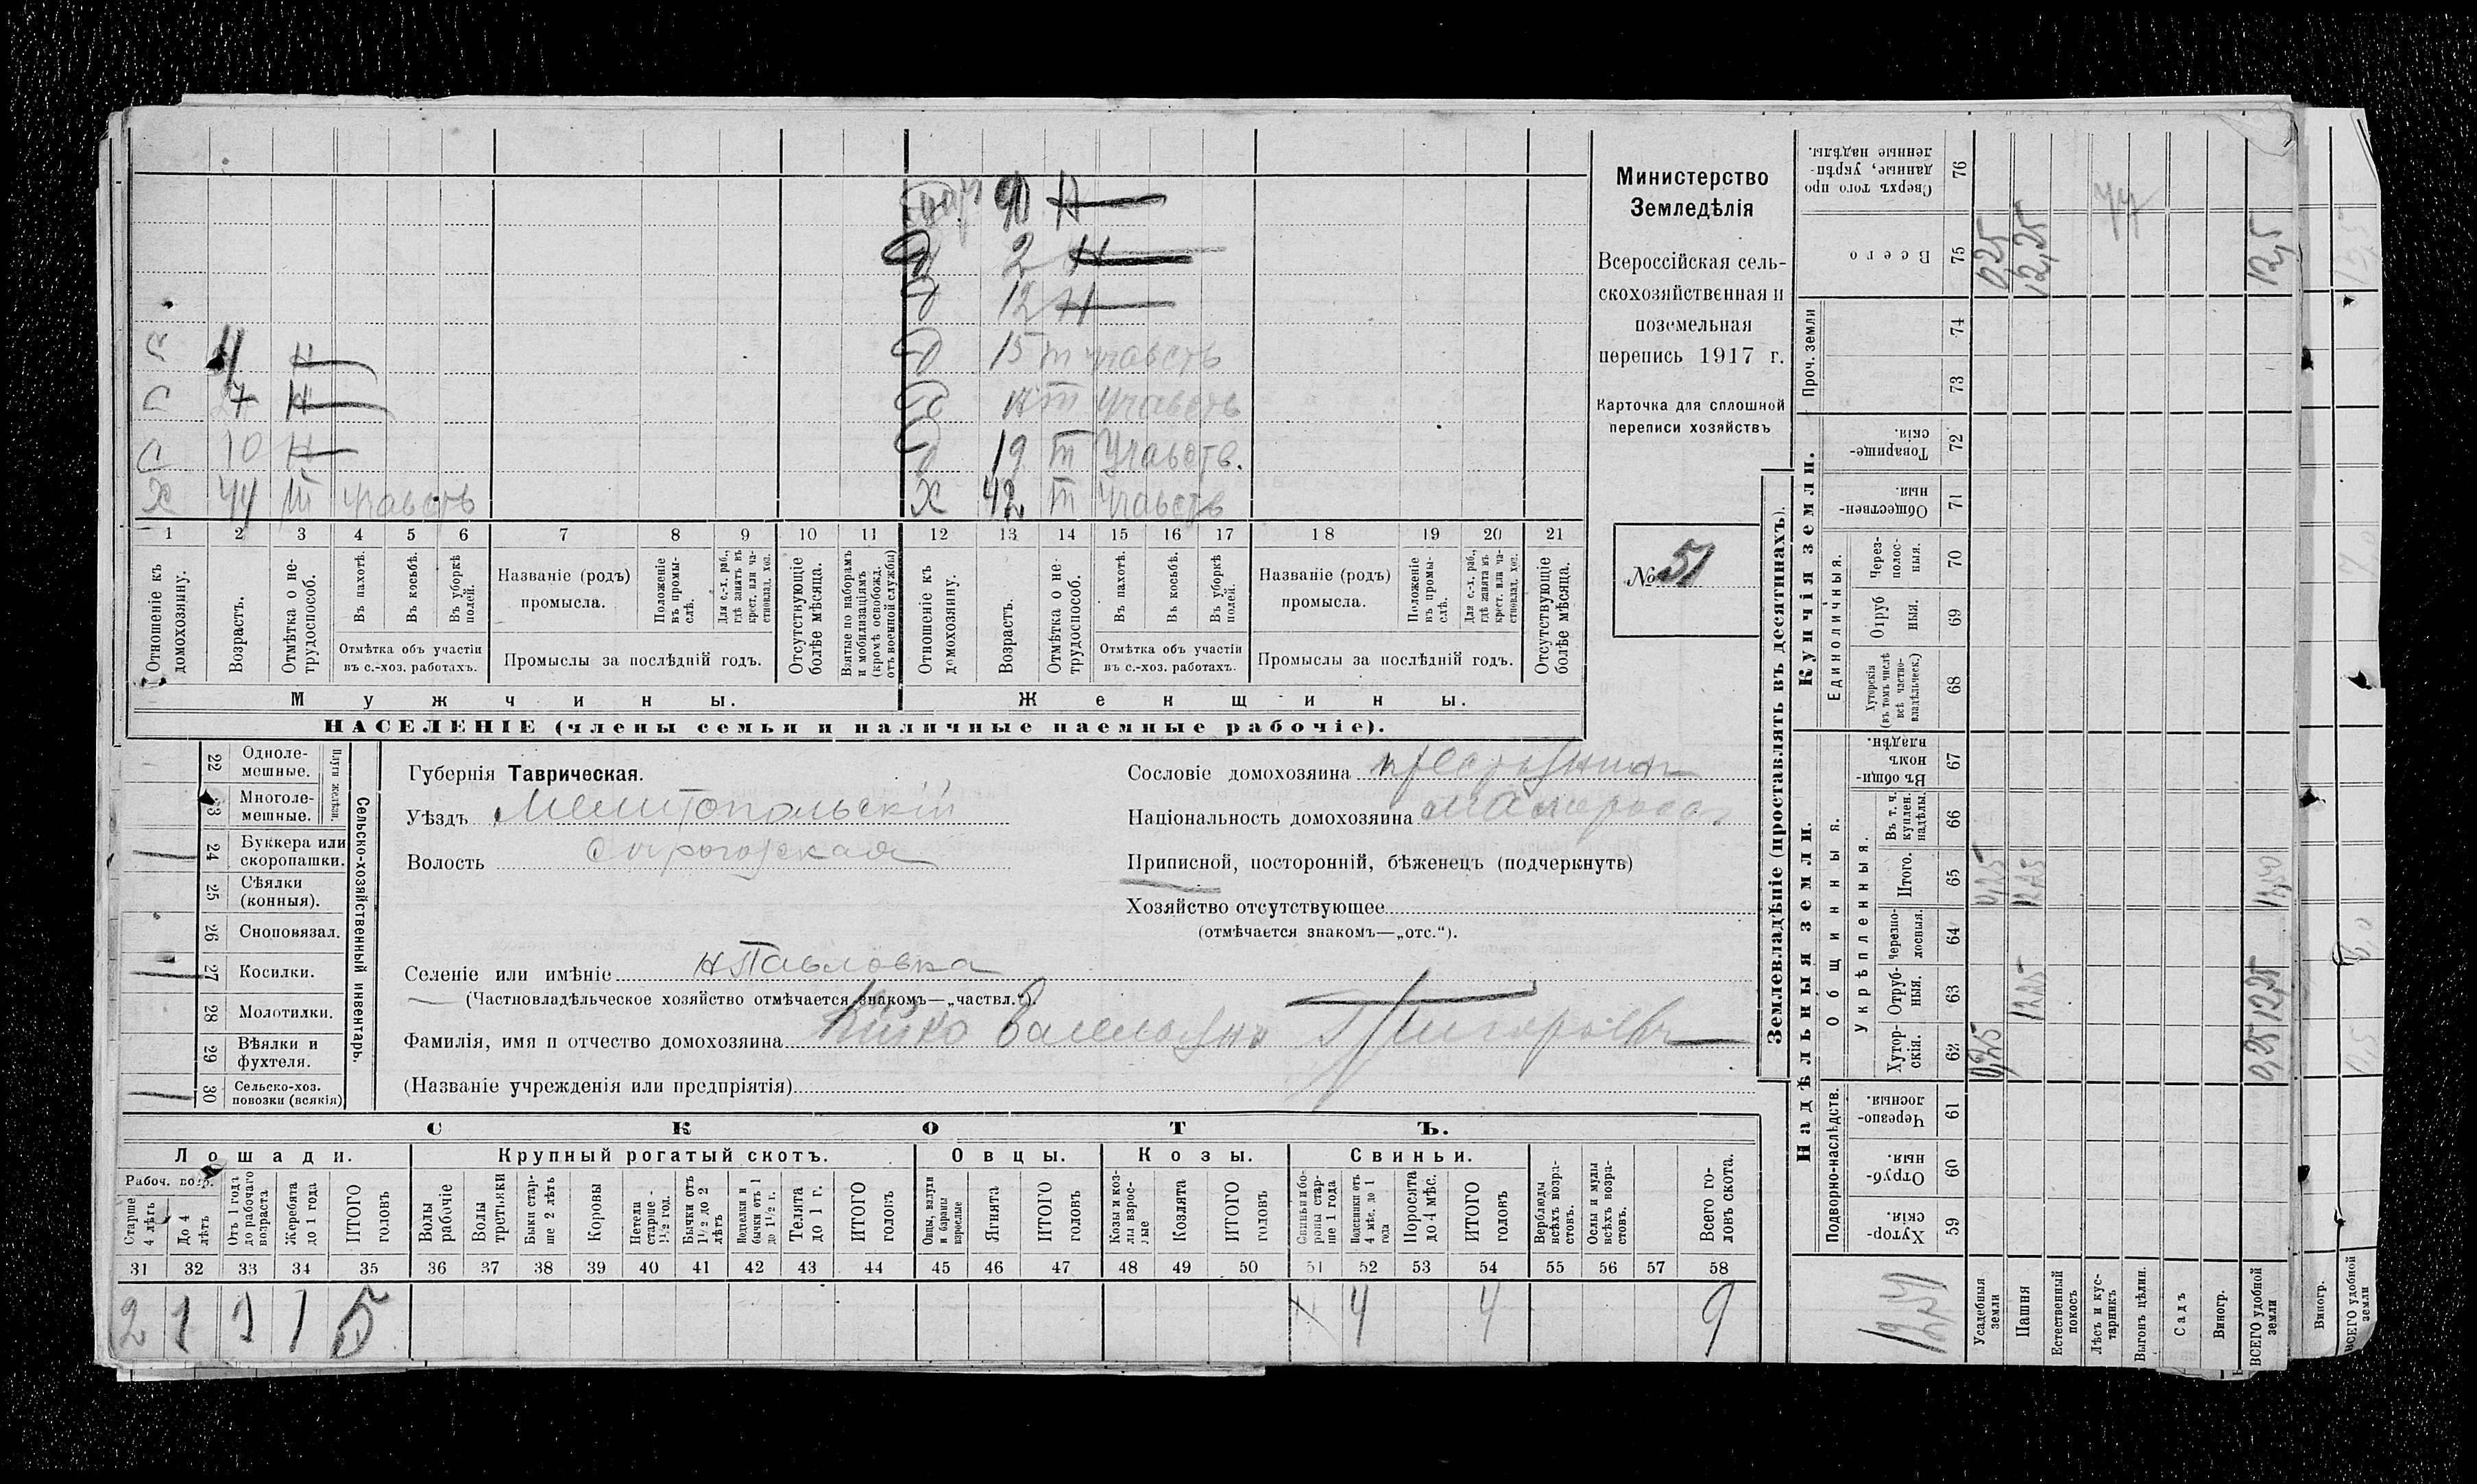 Министерство
Земледѣлія
Всероссійская сель-
скохозяйственная и
поземельная
перепись 1917 г.
Карточка для сплошной
переписи хозяйствъ
№ 51
с 4 н
с 7 н
с 10 н
х 44 т участв
90 н
д 2 н
д 12 н
д 15 т участв
д т участв
д 19 т участв.
х 42 т участв
1 2 3 4 5 6 7 8 9 10 11 12 13 14 15 16 17 18 19 20 21
Отношеніе къ домохозяину.
Возрастъ.
Отмѣтка о не-трудоспособ.
Въ пахотѣ.
Въ косьбѣ.
Въ уборкѣ полей.
Отмѣтка объ участіи
въ с.-хоз. работахъ.
Названіе (родъ)
промысла.
Положеніе въ промы-слѣ.
Для с.-х. раб., гдѣ занятъ въ крест. или ча-стновлад. хоз.
Промыслы за послѣдній годъ.
Отсутствующіе болѣе мѣсяца.
Взятые по наборамъ и мобилизаціямъ (кромѣ освобожд. отъ военной службы)
Отношеніе къ домохозяину.
Возрастъ.
Отмѣтка о не-трудоспособ.
Въ пахотѣ.
Въ косьбѣ.
Въ уборкѣ полей.
Отмѣтка объ участіи
въ с.-хоз. работахъ.
Названіе (родъ)
промысла.
Положеніе въ промы-слѣ.
Для с.-х. раб., гдѣ занята въ крест. или ча-стновлад. хоз.
Промыслы за послѣдній годъ.
Отсутствующіе болѣе мѣсяца.
Мужчины.
Женщины.
НАСЕЛЕНІЕ (члены семьи и наличные наемные рабочіе).
Сельско-хозяйственный инвентарь.
Плуги желѣзн.
22 Однолемешные.
23 Многолемешные.
24 Буккера или скоропашки.
25 Сѣялки (конныя).
26 Сноповязал.
27 Косилки.
28 Молотилки.
29 Вѣялки и фухтеля.
30 Сельско-хоз. повозки (всякія)
Губернія Таврическая.
Уѣздъ Мелитопольскій
Волость Сирогозская
Селеніе или имѣніе Н Павловка
(Частновладѣльческое хозяйство отмѣчается знакомъ—„частвл.“).
Фамилія, имя и отчество домохозяина Григорьевъ
(Названіе учрежденія или предпріятія)
Сословіе домохозяина крестьянин
Національность домохозяина малоросс
Приписной, посторонній, бѣженецъ (подчеркнуть)
Хозяйство отсутствующее
(отмѣчается знакомъ—„отс.“).
СКОТЪ.
Лошади.
Крупный рогатый скотъ.
Овцы.
Козы.
Свиньи.
Рабоч. возр.
Старше 4 лѣтъ
До 4 лѣтъ
Отъ 1 года до рабочаго возраста
Жеребята до 1 года
ИТОГО головъ
Волы рабочіе
Волы третьяки
Быки стар-ше 2 лѣтъ
Коровы
Нетели старше 1½ год.
Бычки отъ 1½ до 2 лѣтъ
Подтелки и бычки отъ 1 до 1½ г.
Телята до 1 г.
ИТОГО головъ
Овцы, валухи и бараны взрослые
Ягнята
ИТОГО головъ
Козы и коз-лы взрос-лые
Козлята
ИТОГО головъ
Свиньи и бо-ровы стар-ше 1 года
Подсвинки отъ 4 мѣс. до 1 года
Поросята до 4 мѣс.
ИТОГО головъ
Верблюды всѣхъ возра-стовъ.
Ослы и мулы всѣхъ возра-стовъ.
Всего го-ловъ скота.
31 32 33 34 35 36 37 38 39 40 41 42 43 44 45 46 47 48 49 50 51 52 53 54 55 56 57 58
2 1 1 1 5 4 4 9
Землевладѣніе (проставлять въ десятинахъ).
Надѣльныя земли.
Купчія земли.
Подворно-наслѣдств.
Общинныя.
Укрѣпленныя.
Единоличныя.
Проч. земли
Хутор-скія. 59
Отруб-ныя. 60
Черезпо-лосныя. 61
Хутор-скія. 62
Отруб-ныя. 63
Черезпо-лосныя. 64
Итого. 65
Въ т. ч. куплен. надѣлы. 66
Въ общин-номъ владѣн. 67
Хуторскія (въ томъ числѣ всѣ частно-владѣльческ.) 68
Отруб ныя. 69
Через-полос-ныя. 70
Обществен-ныя. 71
Товарище-скія. 72
73
74
Всего 75
Сверхъ того про данные, укрѣп-ленные надѣлы. 76
Усадебныя земли 0,25 0,25 0,25
Пашня 12,25 12,25 12,25
Естественный покосъ
Лѣсъ и кус-тарникъ
Выгонъ цѣлин.
Садъ
Виногр.
ВСЕГО удобной земли 0,25 12,25 12,50 12,5
Виногр.
ВСЕГО удобной земли